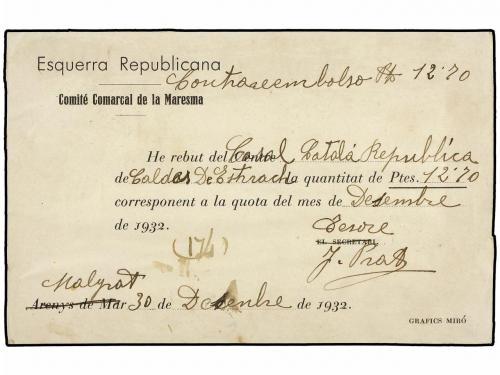 Esquerra Republicana
Contrareembolso Pts 12'70
Comité Comarcal de la Maresma
He rebut del Casal Catalá Republica
de Caldes De Estrach la quantitat de Ptes. 12'70
corresponent a la quota del mes de Desembre
de 1932.
EL SECRETARI
(176)
J. Prat
Malgrat
Arenys de Mar 30 de Desembre de 1932.
GRAFICS MIRÓ